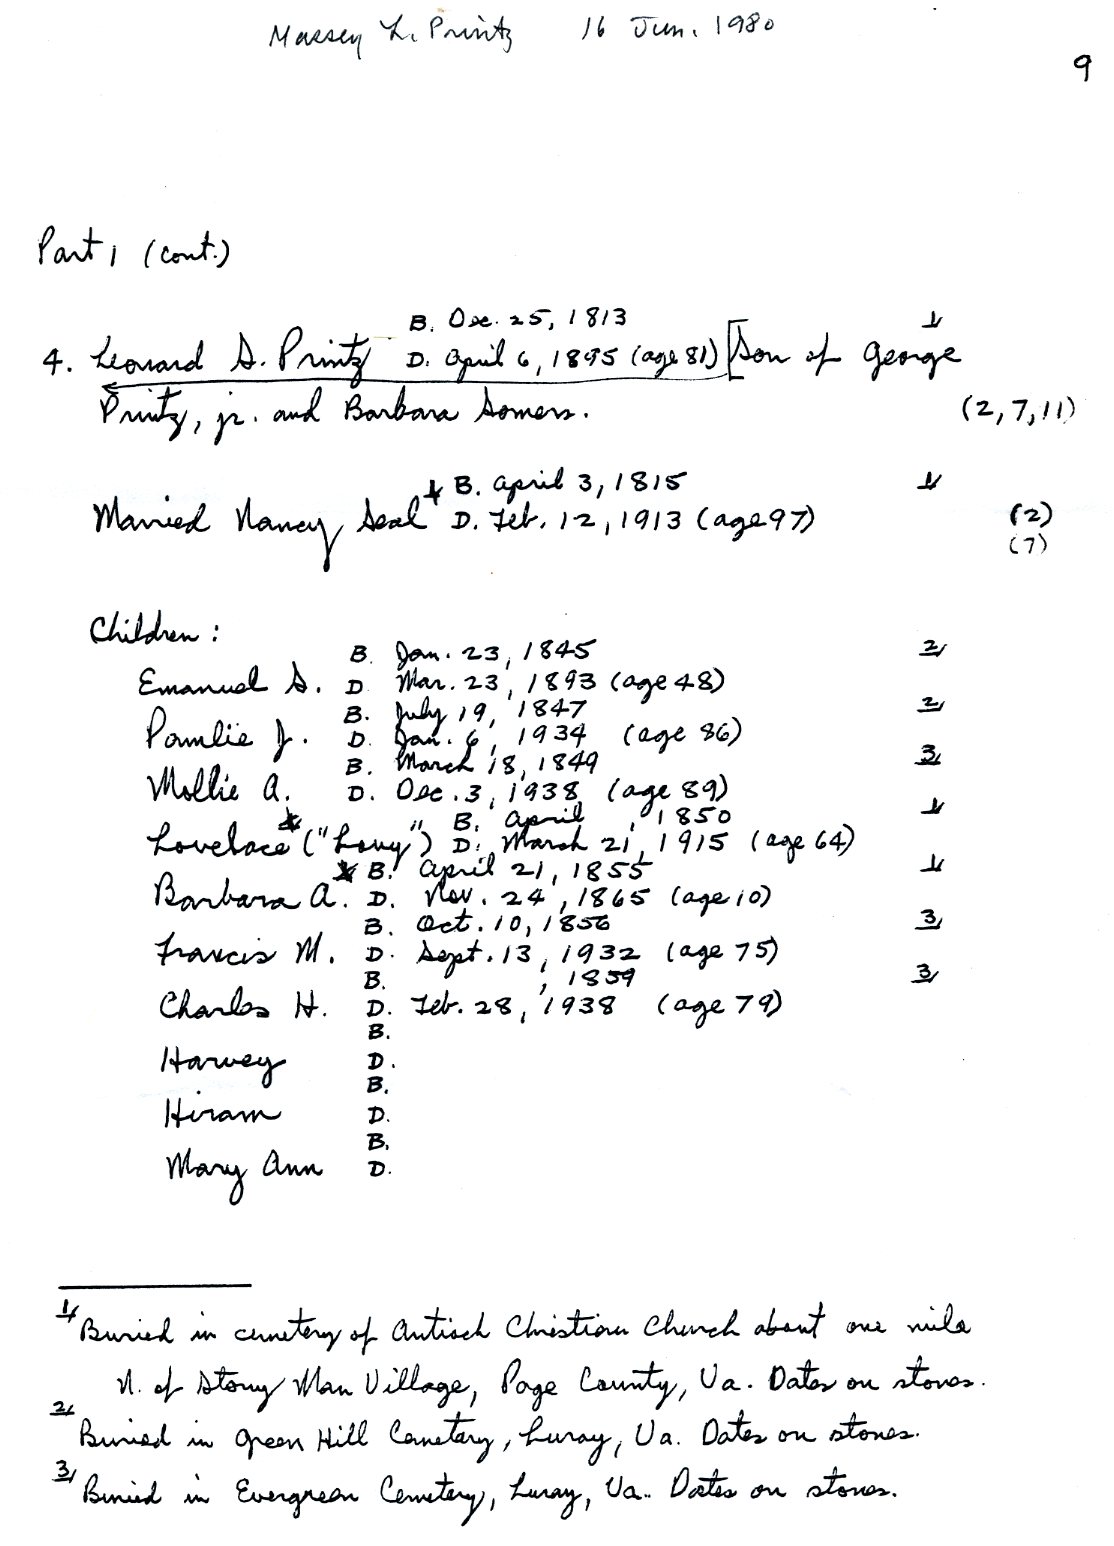 Massey L. Printz 16 Jun. 1980
9
Part 1 (cont.)
B. Dec. 25, 1813 1/
4. Leonard S. Printz D. April 6, 1895 (age 81) [Son of George
Printz, jr. and Barbara Somers. (2,7,11)
B. April 3, 1815 1/
Married Nancy Seal D. Feb. 12, 1913 (age 97) (2)
(7)
Children:
B. Jan. 23, 1845 2/
Emanuel S. D. Mar. 23, 1893 (age 48)
B. July 19, 1847 2/
Pamlie J. D. Jan. 6, 1934 (age 86)
B. March 18, 1849 3/
Mollie A. D. Dec. 3, 1938 (age 89)
B. April , 1850 1/
Lovelace ("Lovy") D. March 21, 1915 (age 64)
B. April 21, 1855 1/
Barbara A. D. Nov. 24, 1865 (age 10)
B. Oct. 10, 1856 3/
Francis M. D. Sept. 13, 1932 (age 75)
B. , 1859 3/
Charles H. D. Feb. 28, 1938 (age 79)
B.
Harvey D.
B.
Hiram D.
B.
Mary Ann D.
1/ Buried in cemetery of Antioch Christian Church about one mile
N. of Stony Man Village, Page County, Va. Dates on stones.
2/ Buried in Green Hill Cemetary, Luray, Va. Dates on stones.
3/ Buried in Evergreen Cemetery, Luray, Va.. Dates on stones.